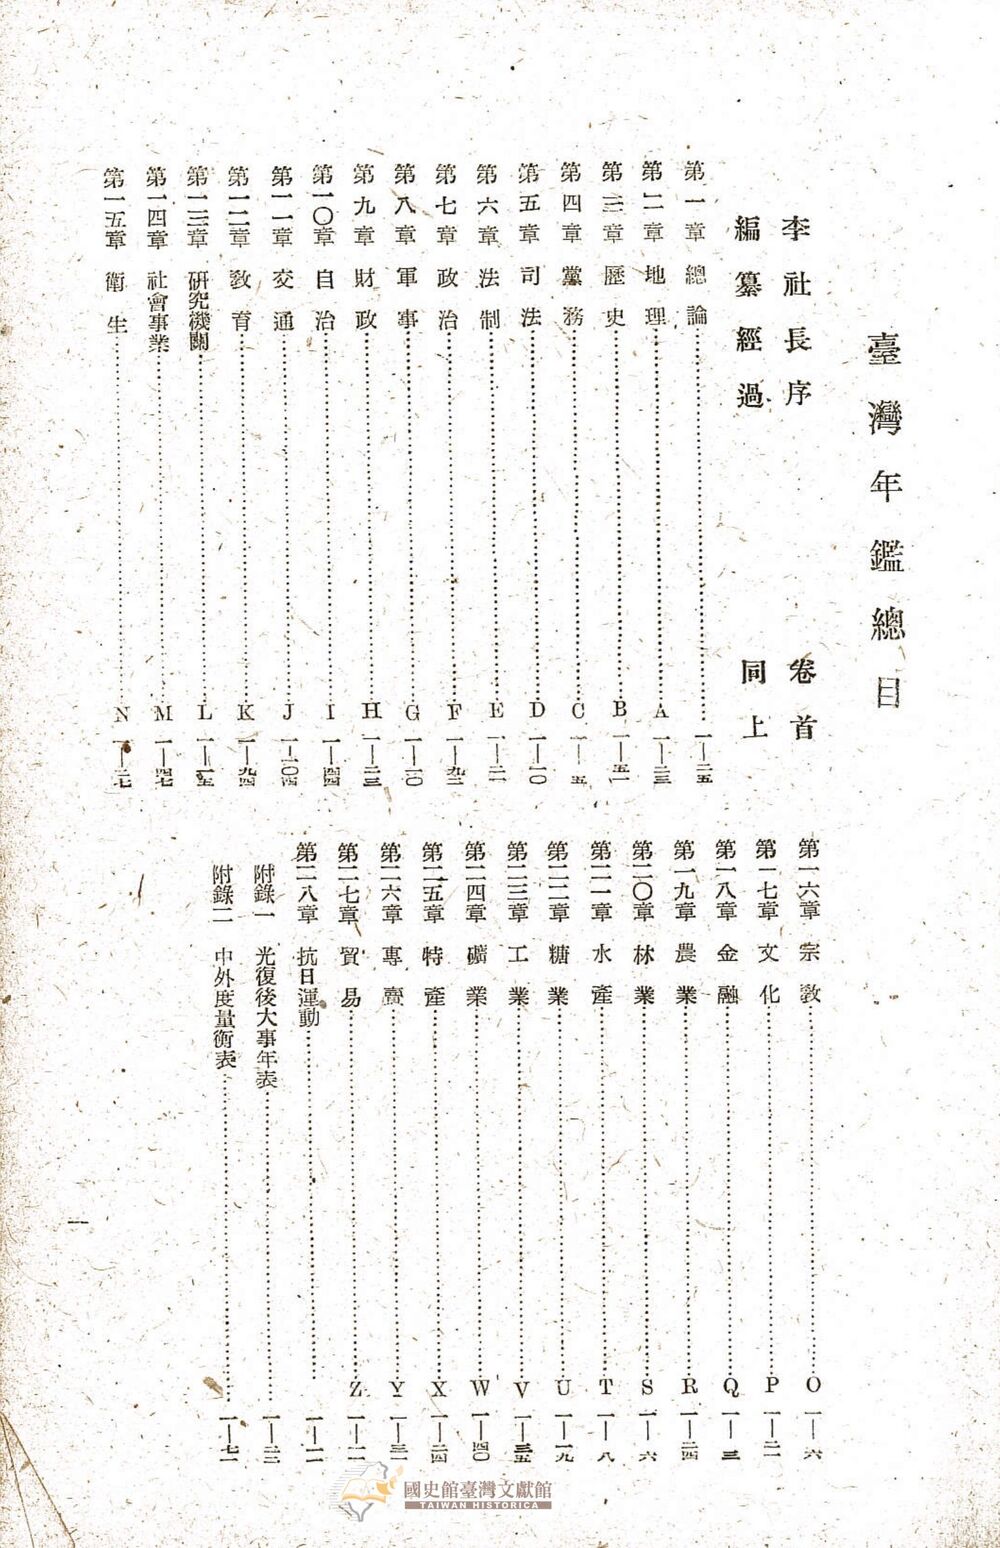 臺灣年鑑總目
李社長序 卷首
編纂經過 同上
第一章 總論 一—二五
第二章 地理 A 一—二三
第三章 歷史 B 一—五一
第四章 黨務 C 一—五
第五章 司法 D 一—一〇
第六章 法制 E 一—二一
第七章 政治 F 一—九二
第八章 軍事 G 一—一〇
第九章 財政 H 一—二三
第一〇章 自治 I 一—四四
第一一章 交通 J 一—一〇四
第一二章 敎育 K 一—九四
第一三章 研究機關 L 一—一五
第一四章 社會事業 M 一—四七
第一五章 衛生 N 一—二七
第一六章 宗敎 O 一—六
第一七章 文化 P 一—二一
第一八章 金融 Q 一—三一
第一九章 農業 R 一—二四
第二〇章 林業 S 一—六
第二一章 水產 T 一—八
第二二章 糖業 U 一—一九
第二三章 工業 V 一—三五
第二四章 礦業 W 一—四〇
第二五章 特產 X 一—二四
第二六章 專賣 Y 一—三一
第二七章 貿易 Z 一—二一
第二八章 抗日運動 一—二一
附錄一 光復後大事年表 一—二三
附錄二 中外度量衡表 一—七一
一
國史館臺灣文獻館
TAIWAN HISTORICA